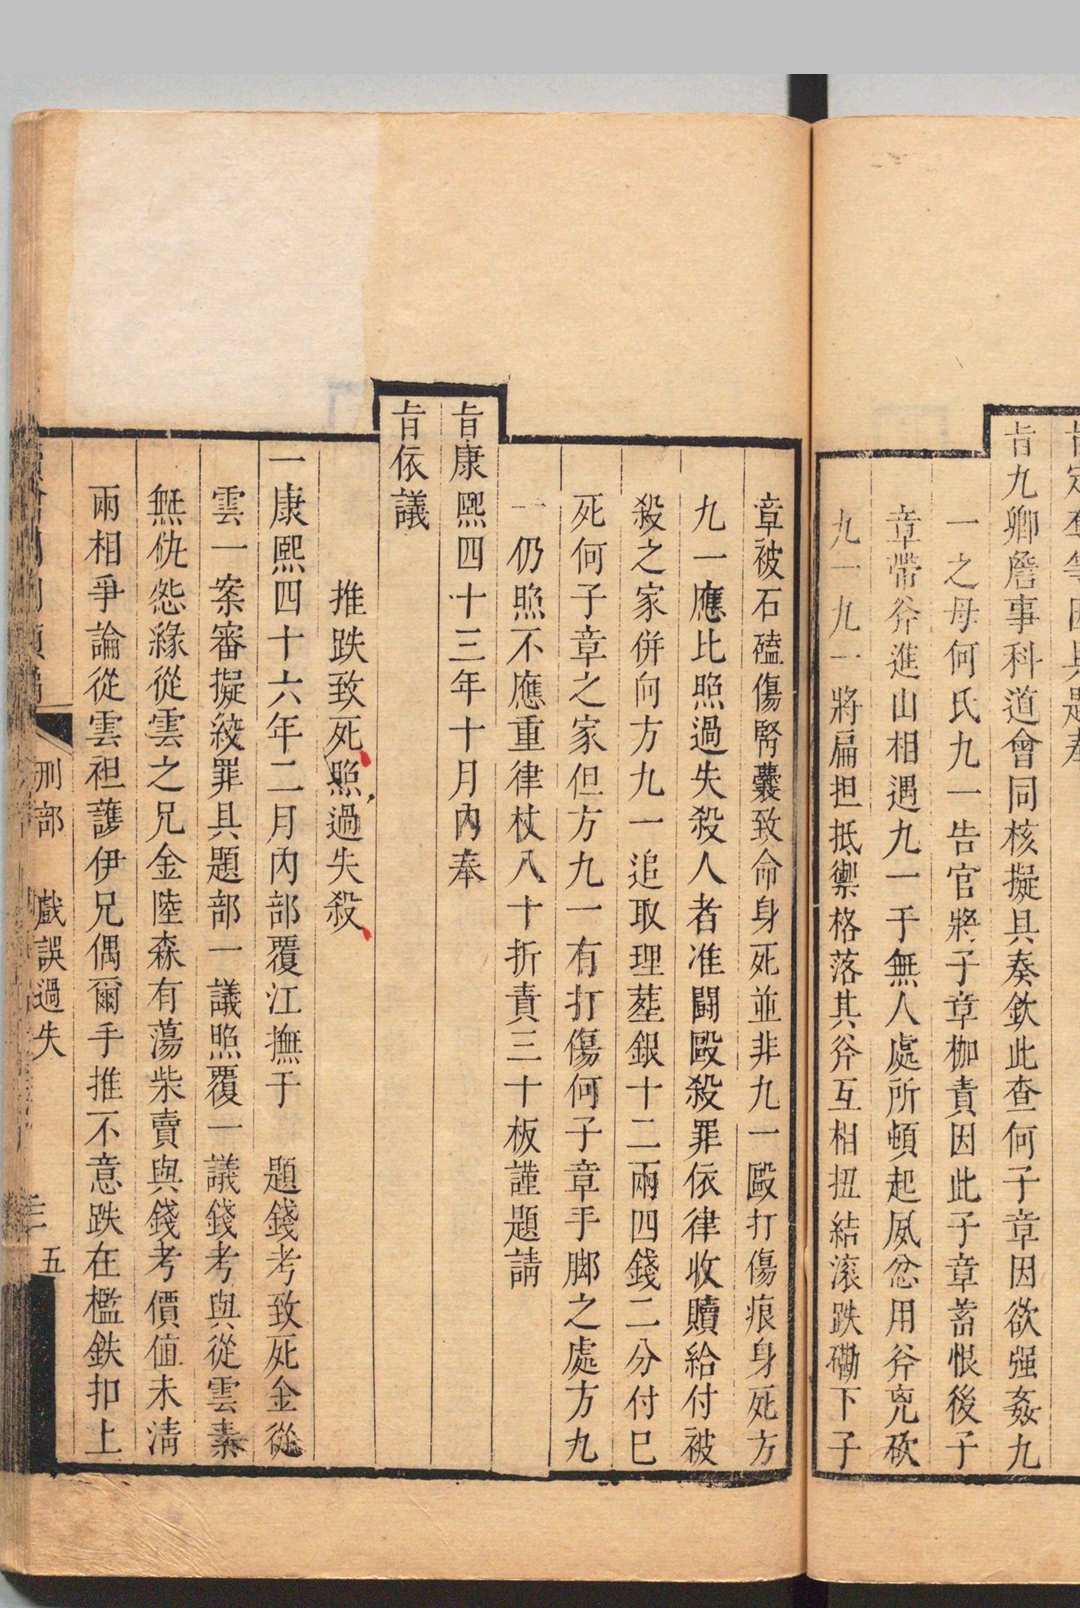 旨九卿詹事科道會同核擬具奏欽此查何子章因欲强姦九
一之母何氏九一告官將子章枷責因此子章蓄恨後子
章帶斧進山相遇九一于無人處所頓起夙忿用斧兇砍
九一九一將扁担抵禦格落其斧互相扭結滚跌磡下子
章被石磕傷腎囊致命身死並非九一毆打傷痕身死方
九一應比照過失殺人者准鬪毆殺罪依律收贖給付被
殺之家併向方九一追取理塟銀十二兩四錢二分付巳
死何子章之家但方九一有打傷何子章手脚之處方九
一仍照不應重律杖八十折責三十板謹題請
旨康熙四十三年十月內奉
旨依議
推跌致死照過失殺
一康熙四十六年二月內部覆江撫于　題錢考致死金從
雲一案審擬絞罪具題部一議照覆一議錢考與從雲素
無仇怨緣從雲之兄金陸森有蕩柴賣與錢考價值未清
兩相爭論從雲袒護伊兄偶爾手推不意跌在檻鉄扣上
刑部　戲誤過失　五